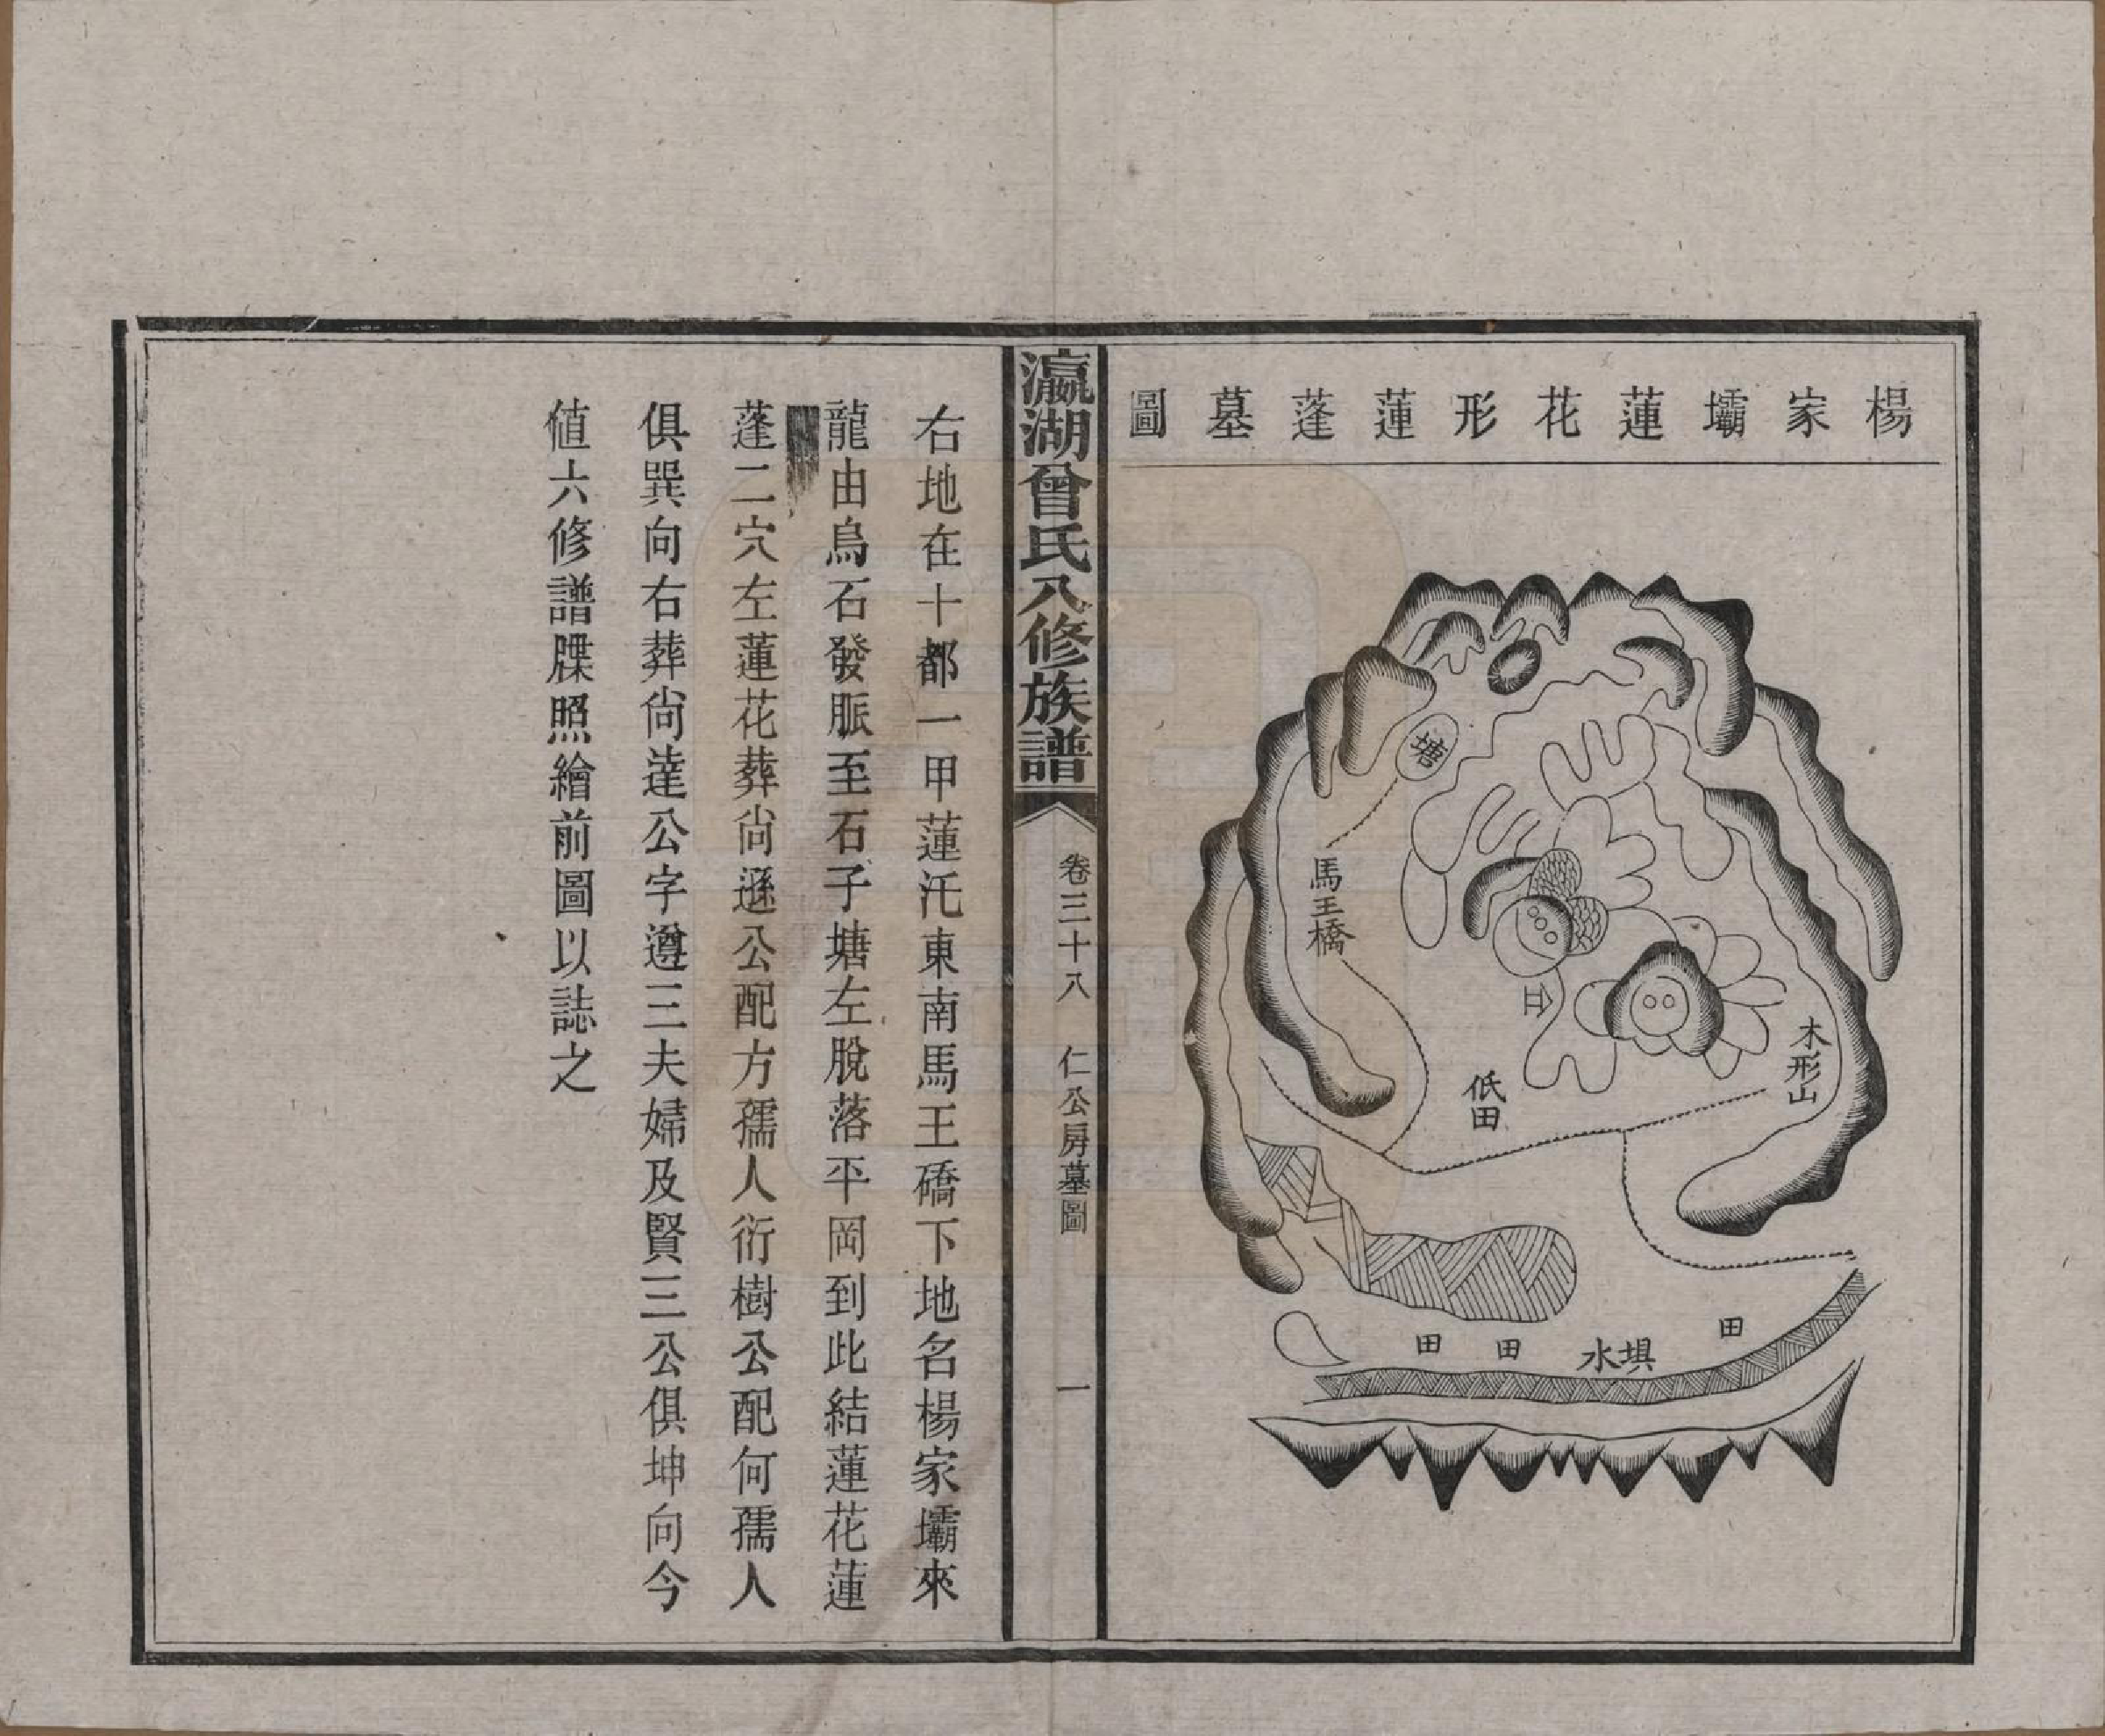 楊家壩蓮花形蓮蓬墓圖
塘
馬王橋
立
低田
木形山
田
田
水垻
田
瀛湖曾氏八修族譜
卷三十八
仁公房墓圖
一
右地在十都一甲蓮汑東南馬王礄下地名楊家壩來
龍由烏石發脈至石子塘左脫落平岡到此結蓮花蓮
蓬二穴左蓮花葬尙遜公配方孺人衍樹公配何孺人
俱巽向右葬尙達公字遵三夫婦及賢三公俱坤向今
値六修譜牒照繪前圖以誌之